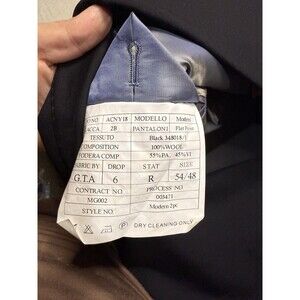 ACNY18 MODELLO Modern
2B PANTALONI Flat Front
TESSUTO Black 348018/1
COMPOSITION 100%WOOL
FODERA COMP 55%PA, 45%VI
FABRIC BY DROP STATI SIZE
G.T.A 6 R 54/48
CONTRACT NO PROCESS NO
MG002 005471
STYLE NO. Modern 2pc
DRY CLEANING ONLY